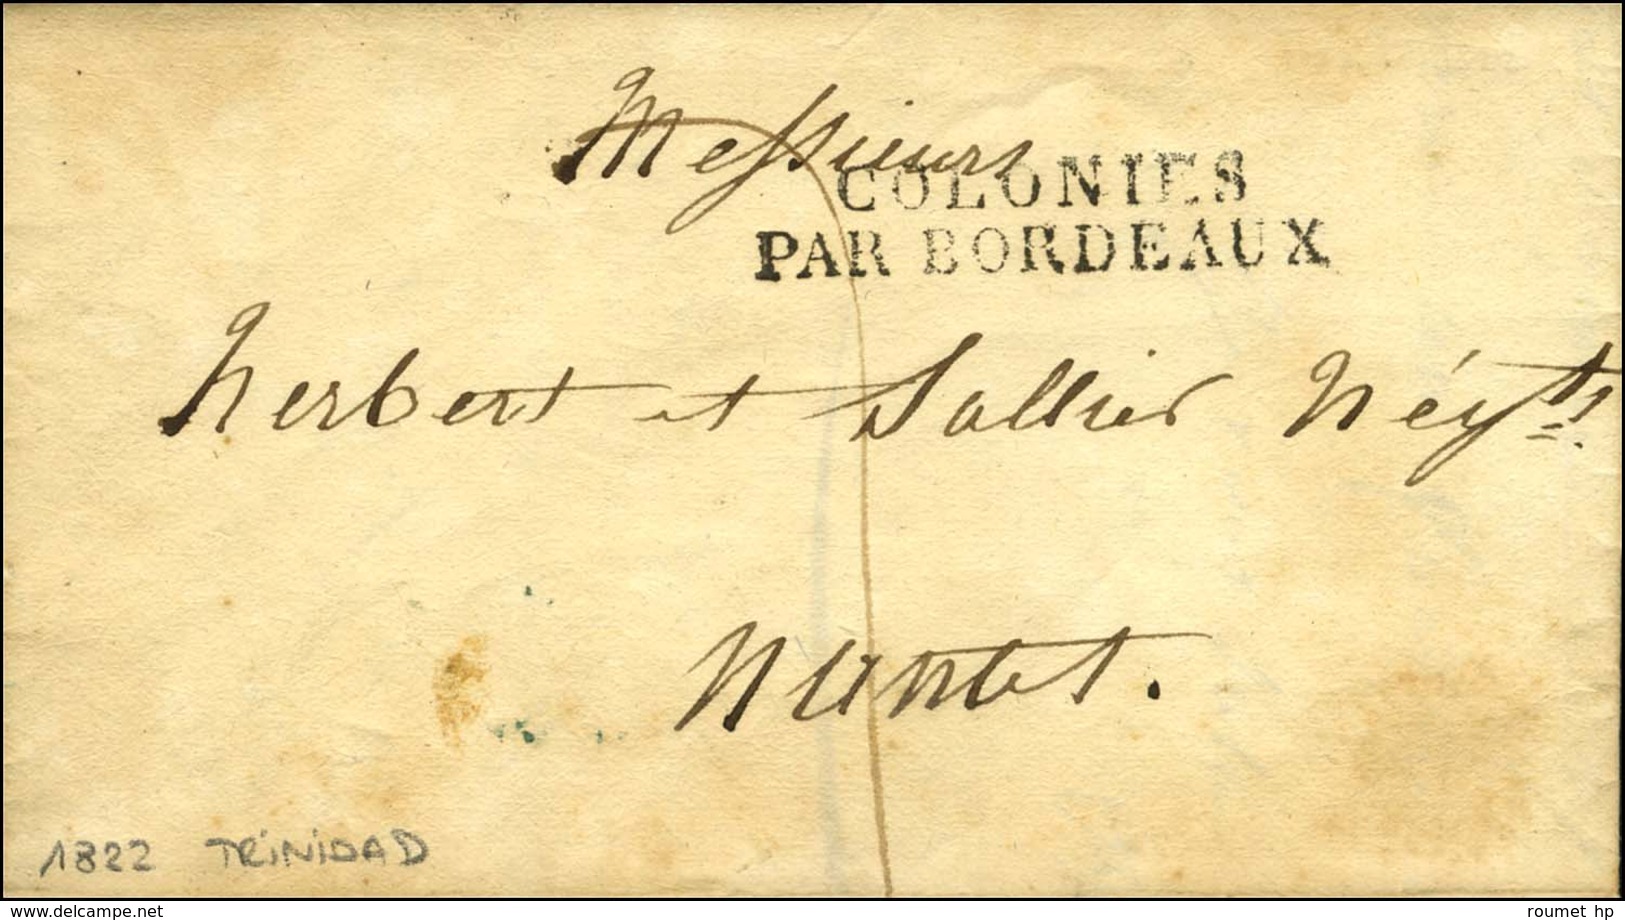 Messieurs
COLONIES
PAR BORDEAUX
herbert et Sallier Négts
Nantes.
1822 TRINIDAD
www.delcampe.net
roumet hp